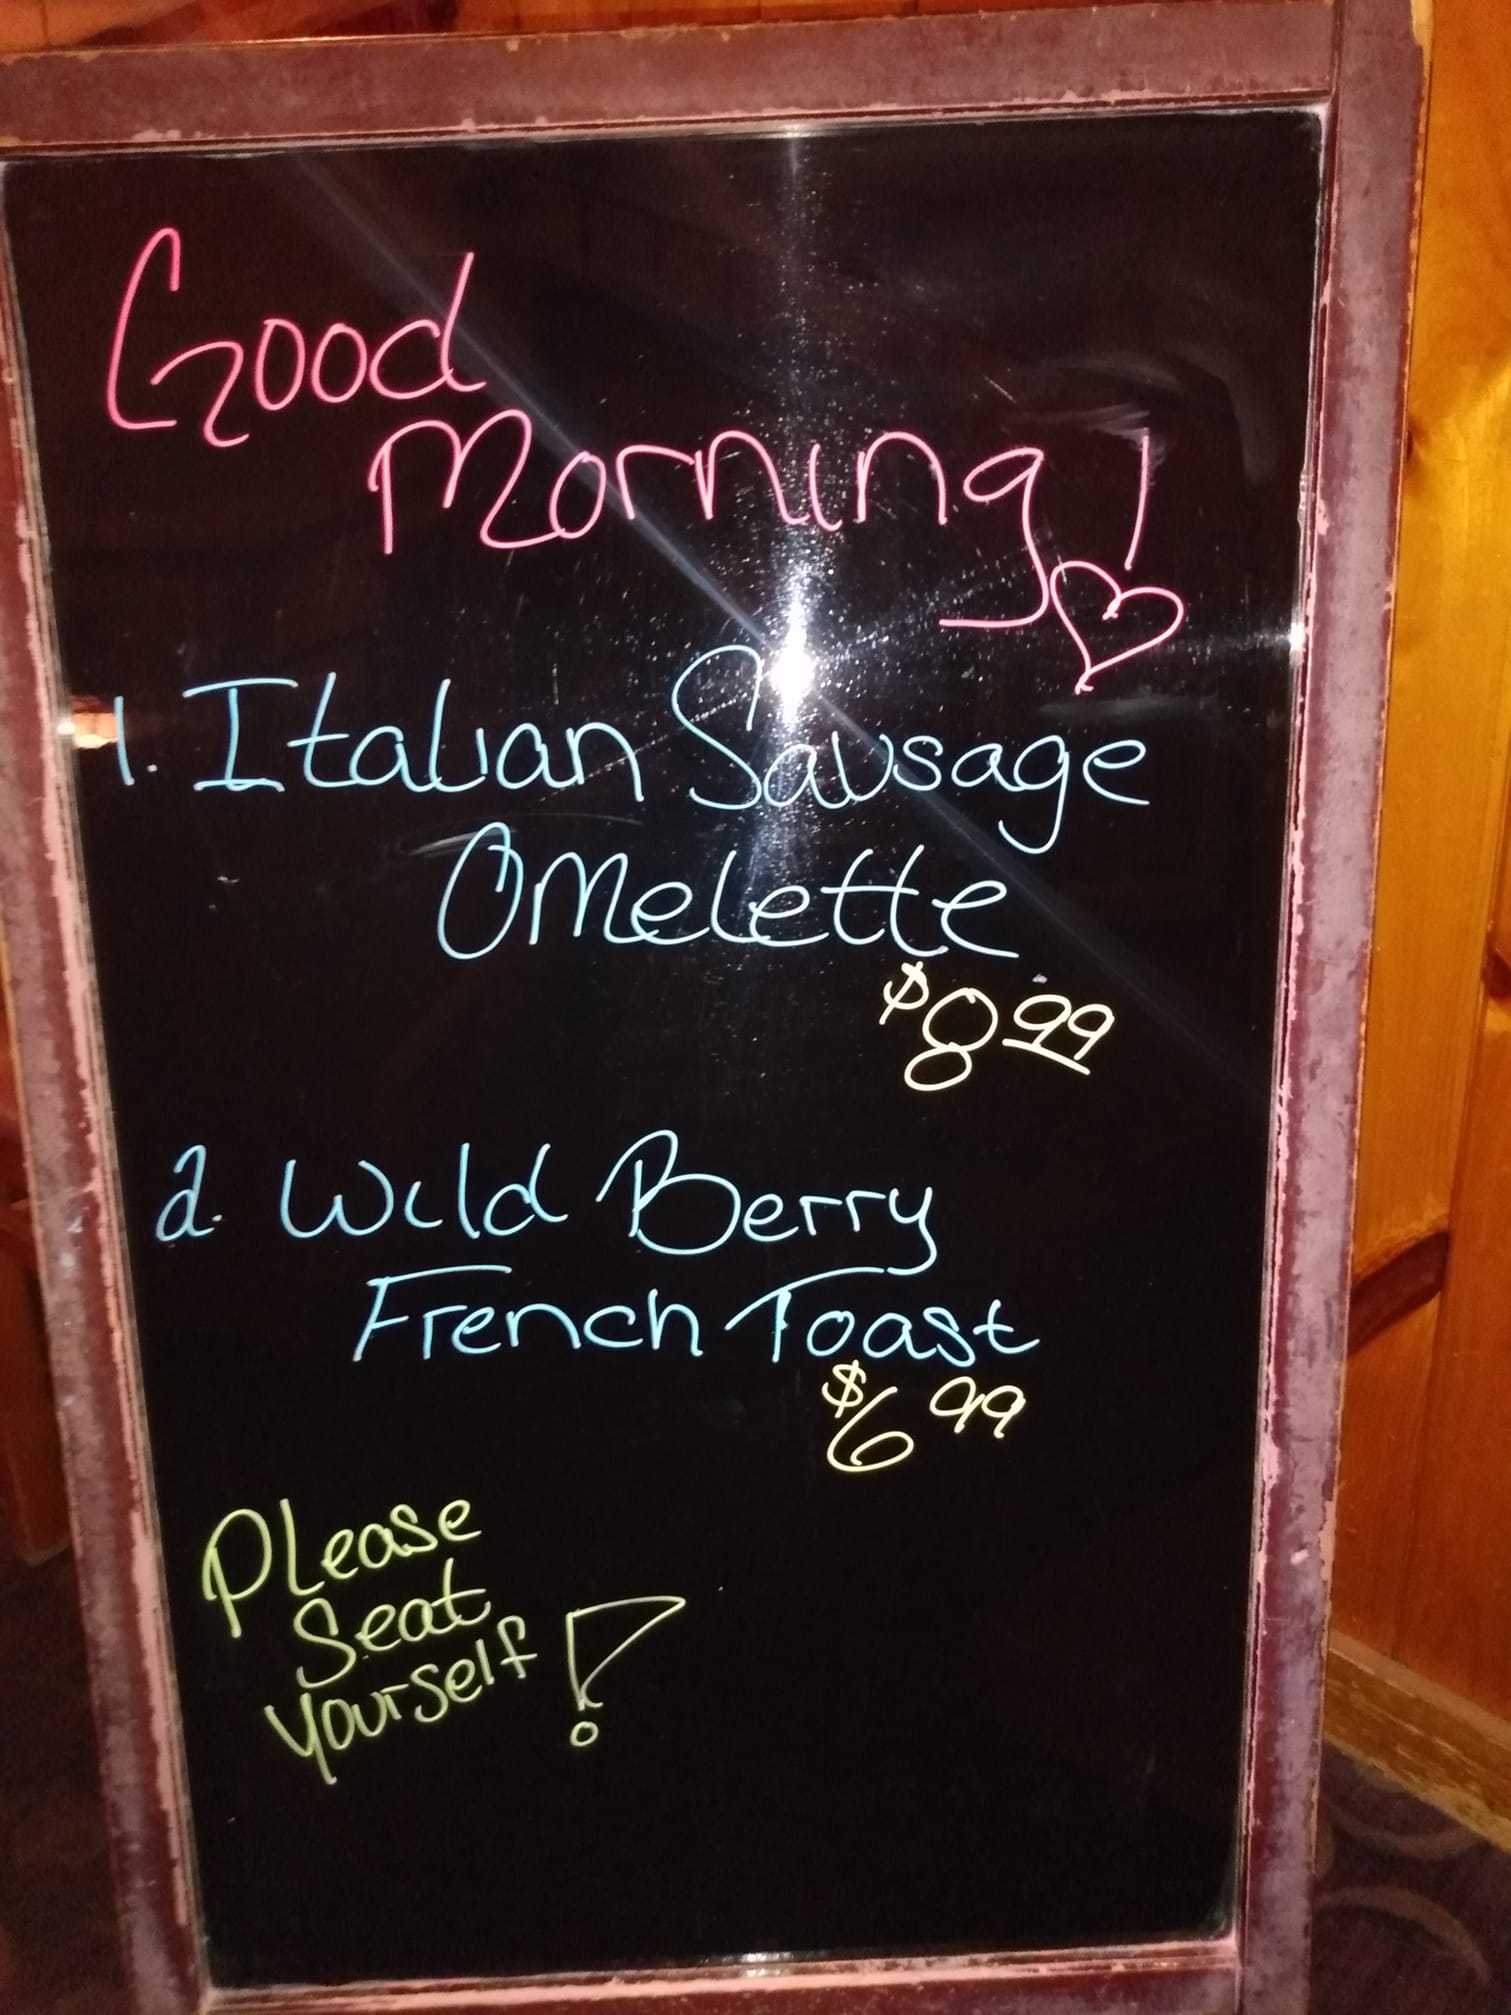 Good
Morning!
1. Italian Sausage
Omelette
$8.99
2. Wild Berry
French Toast
$6.99
Please
Seat
Yourself!